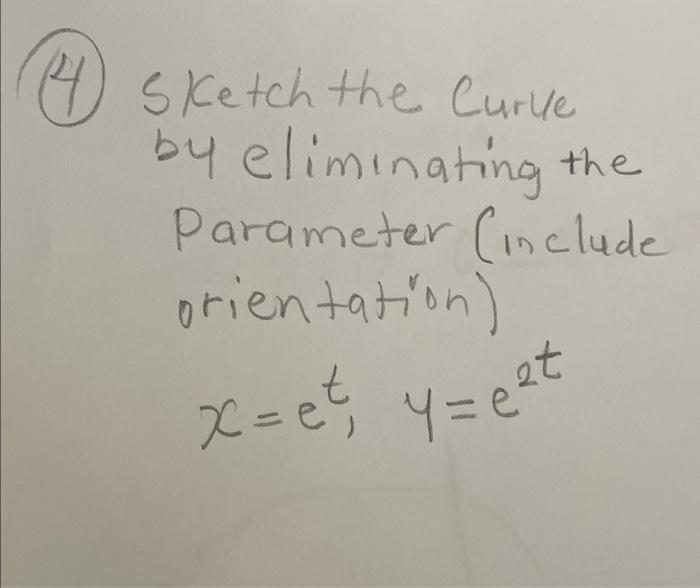 4 Sketch the Curve
by eliminating the
Parameter (include
orientation)
x = e^t, y = e^{2t}